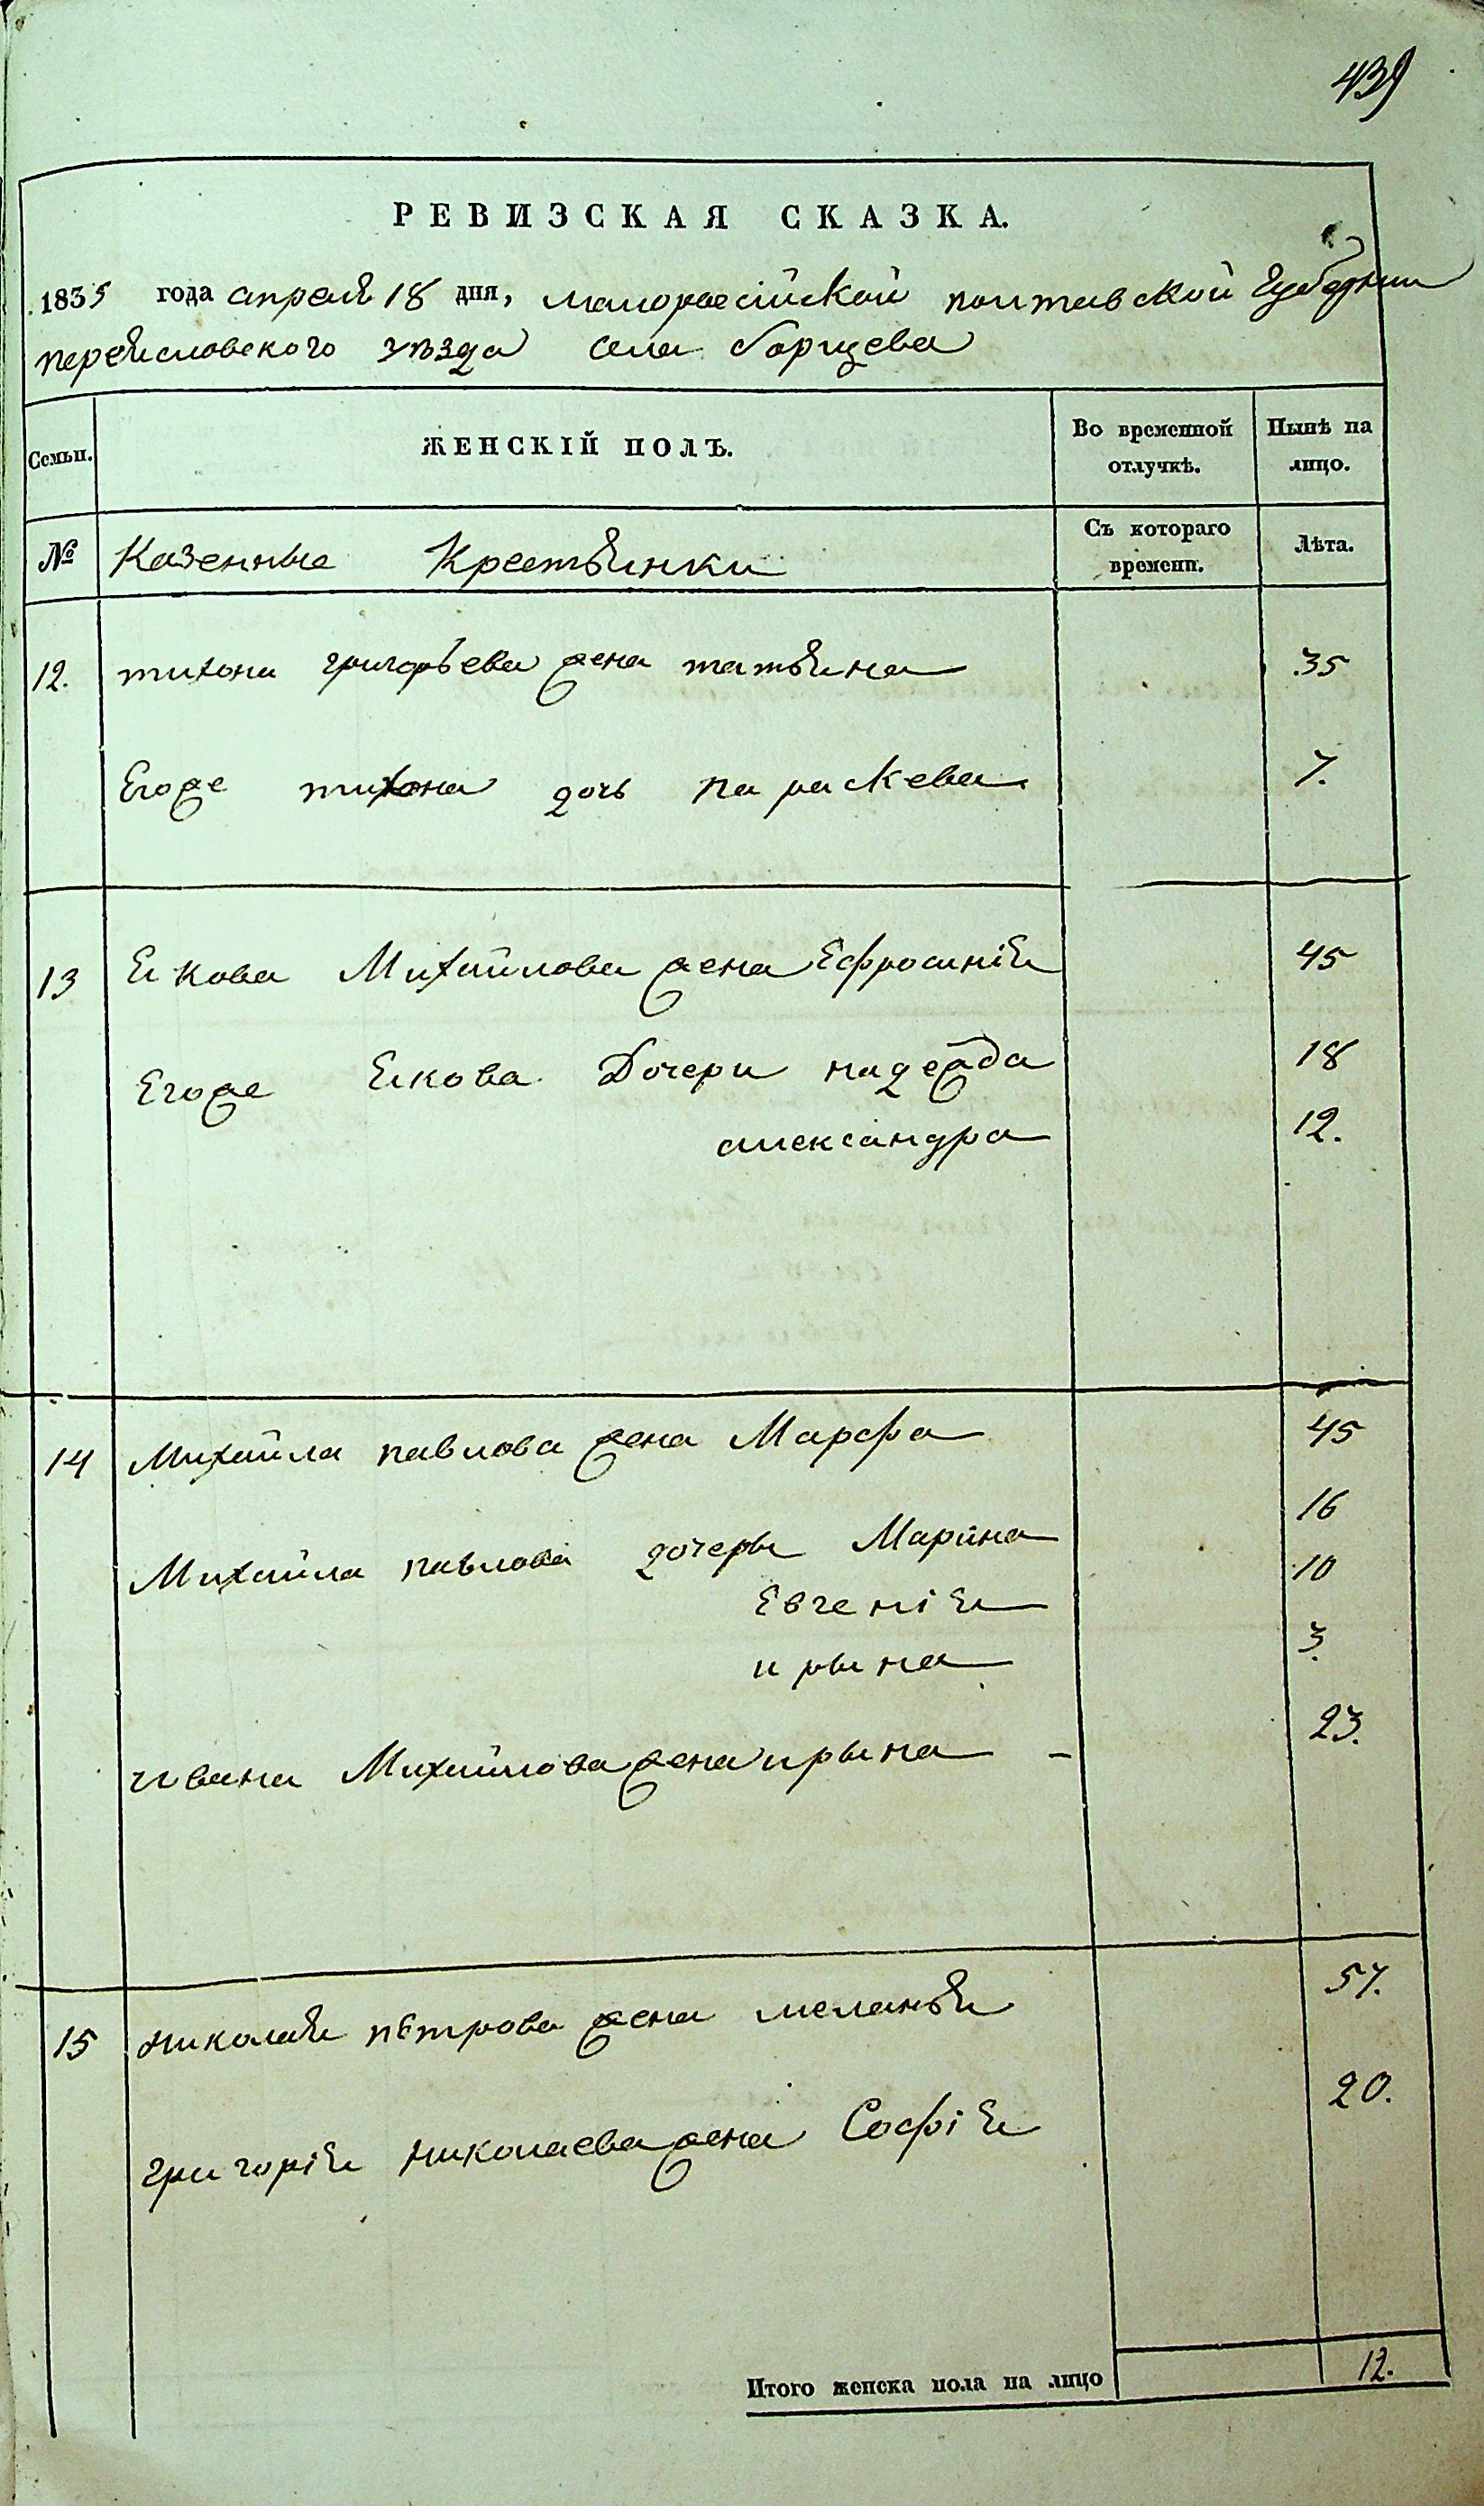 439
РЕВИЗСКАЯ СКАЗКА.
1835 года апреля 18 дня, малоросійской полтавской Губернии
переясловского уѣзда села борщева
Семьи. ЖЕНСКІЙ ПОЛЪ. Во временной отлучкѣ. Нынѣ на лицо.
№ Казенные Крестьянки Съ котораго времени. Лѣта.
12. тихона григорьева жена татьяна 35
Егоже тихона дочь параскева 7.
13 Якова Михайлова жена Ефросинія 45
Егоже Якова Дочери надежда 18
александра 12.
14 Михайла павлова жена Марфа 45
Михайла павлова дочеры Марина 16
Евгенія 10
ирына 3.
ивана Михайлова жена ирына 23.
15 николая петрова жена меланья 57.
григорія николаева жена Софія 20.
Итого женска пола на лицо 12.